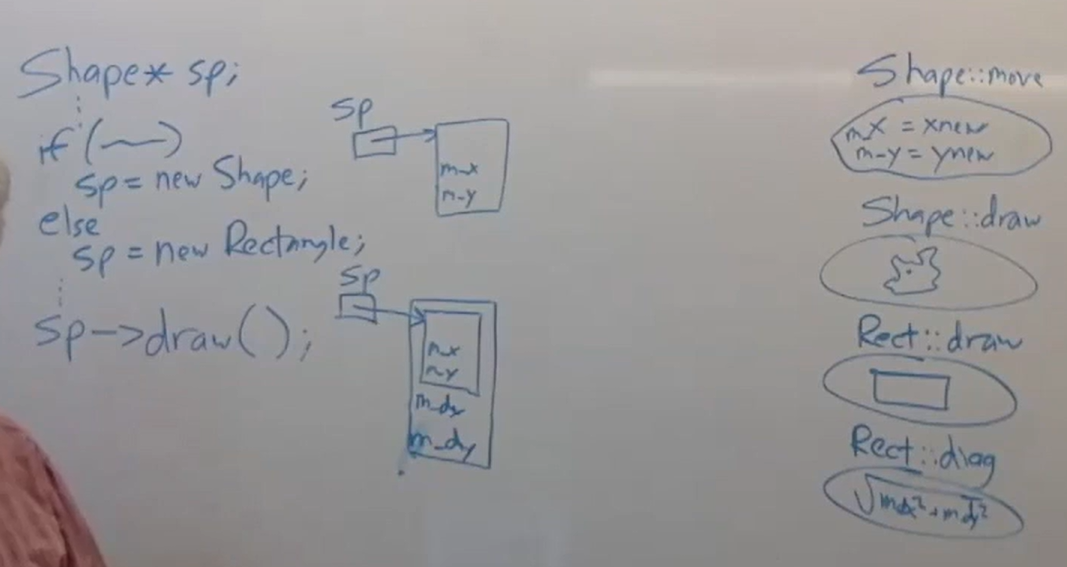 Shape* sp;
if (~)
sp = new Shape;
else
sp = new Rectangle;
sp->draw();
sp
m_x
m_y
sp
m_x
m_y
m_dx
m_dy
Shape::move
m_x = xnew
m_y = ynew
Shape::draw
Rect::draw
Rect::diag
√mdx²+mdy²